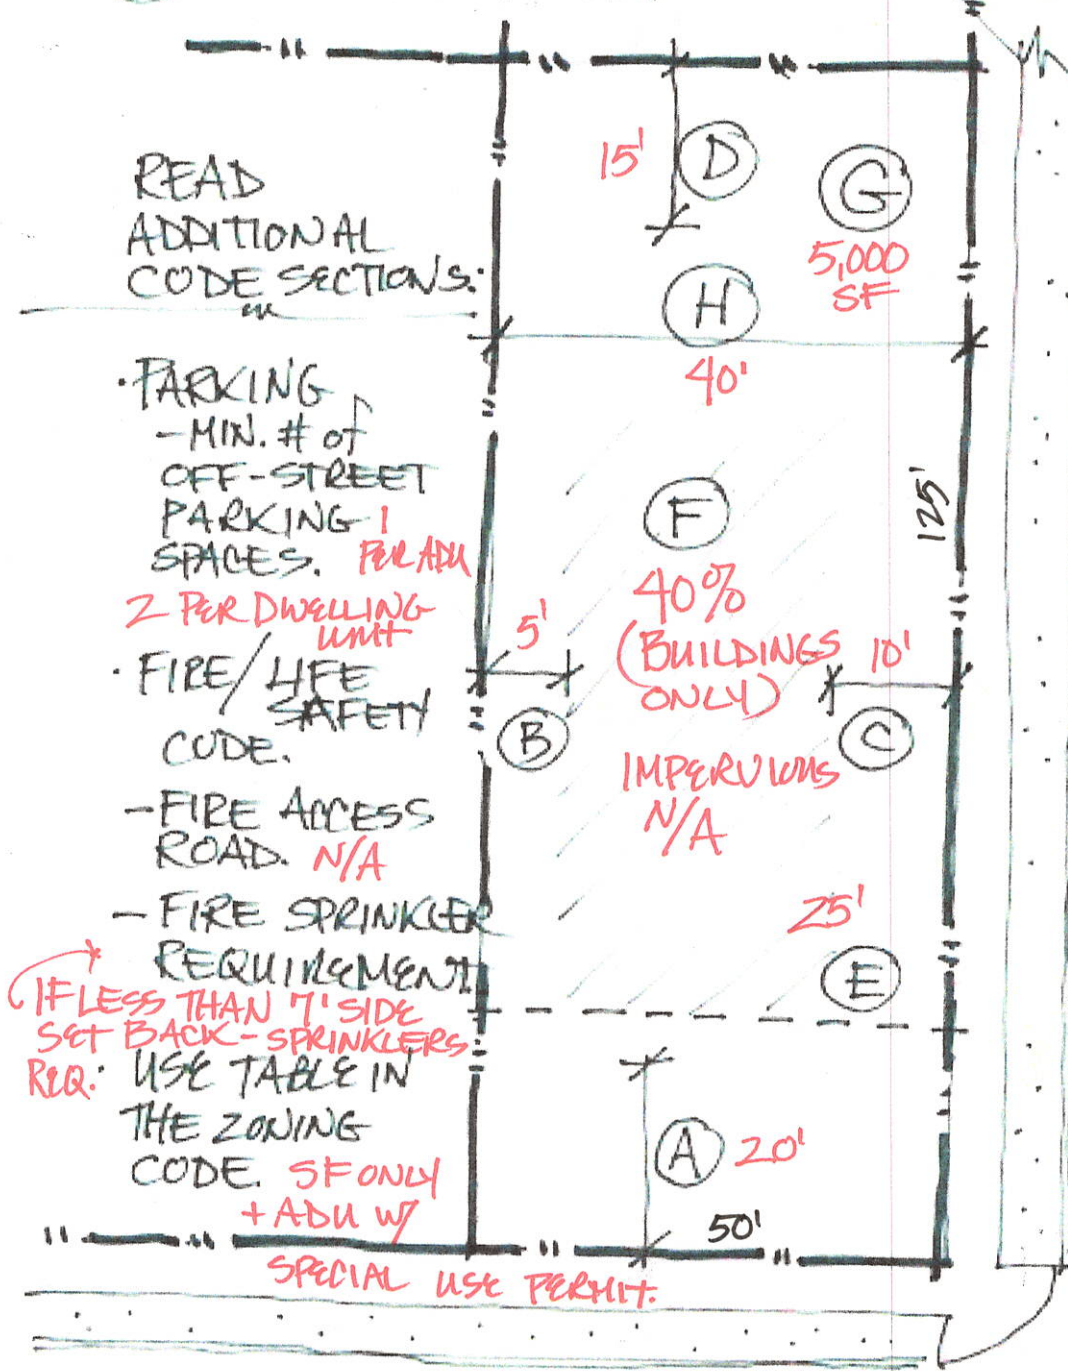 READ
ADDITIONAL
CODE SECTIONS:
· PARKING
- MIN. # of
OFF-STREET
PARKING 1
SPACES. PER ADU
2 PER DWELLING
UNIT
· FIRE/LIFE
SAFETY
CODE.
- FIRE ACCESS
ROAD. N/A
- FIRE SPRINKLER
REQUIREMENT
IF LESS THAN 7' SIDE
SET BACK - SPRINKLERS
REQ.
· USE TABLE IN
THE ZONING
CODE. SF ONLY
+ ADU W/
SPECIAL USE PERMIT.
15'
D
G
5,000
SF
H
40'
125'
F
40%
(BUILDINGS
ONLY)
5'
10'
B
C
IMPERVIOUS
N/A
25'
E
A 20'
50'